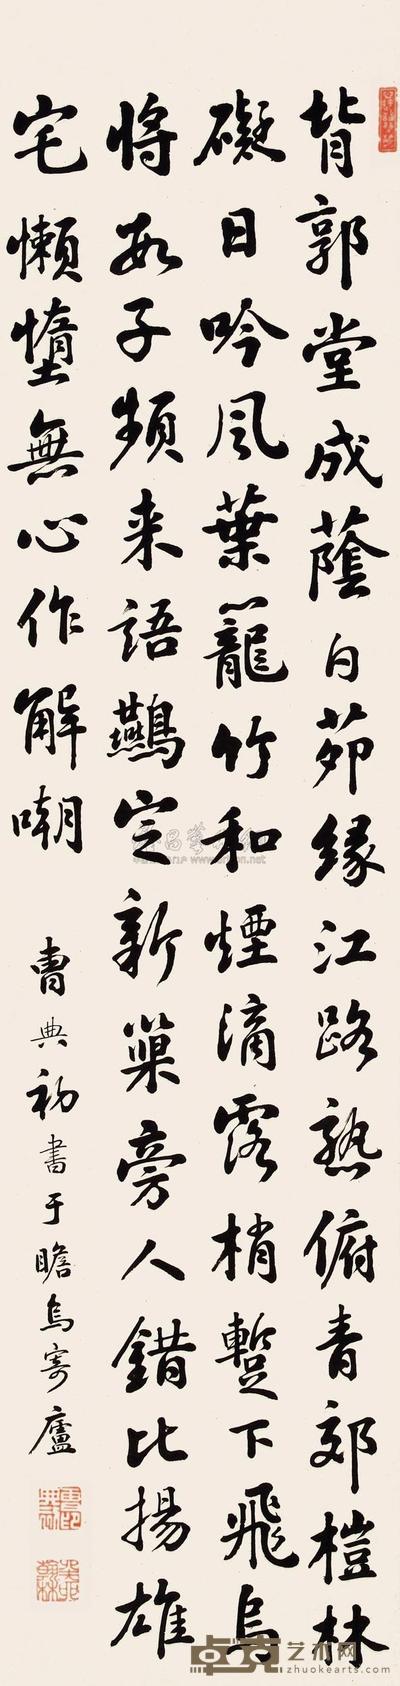 背郭堂成蔭白茆緣江路熟俯青郊榿林
礙日吟風葉籠竹和煙滴露梢蹔下飛烏
將數子頻来語鷰定新巢旁人錯比揚雄
宅懶惰無心作解嘲
曹典初書于瞻烏寄廬
卓克艺术网
zhuokearts.com